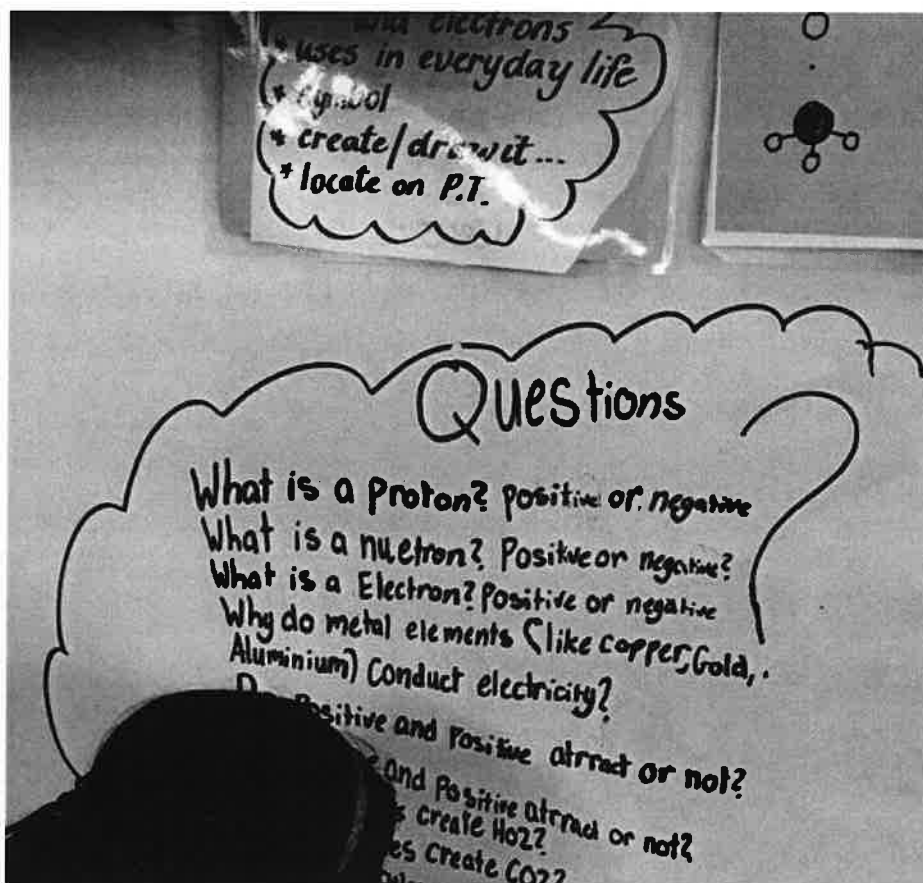 and electrons
* uses in everyday life
* symbol
* create/draw it...
* locate on P.T.
Questions
What is a proton? positive or negative
What is a nuetron? Positive or negative?
What is a Electron? Positive or negative
Why do metal elements (like copper, Gold,
Aluminium) Conduct electricity?
Positive and Positive atrract or not?
and Positive atrract or not?
create HO2?
create CO2?